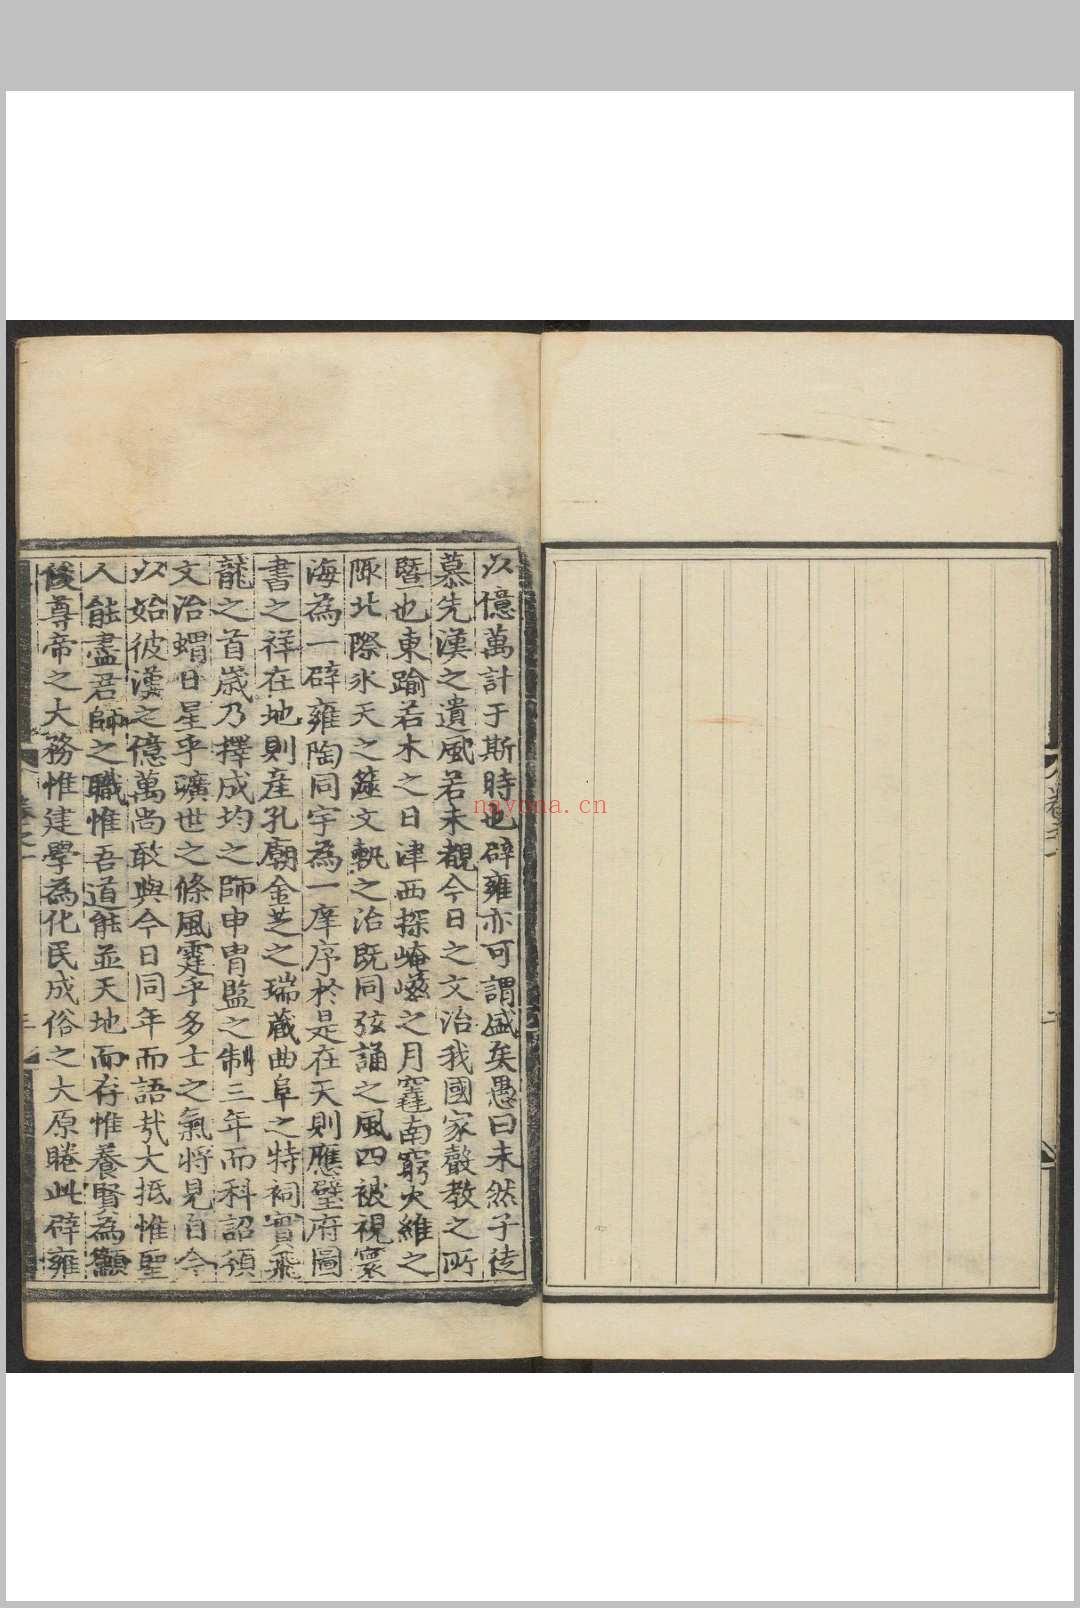 以億萬計于斯時也辟雍亦可謂盛矣愚曰未然子徒
慕先漢之遺風若未覩今日之文治我國家聲教之所
曁也東踰若木之日津西探崦嵫之月窟南窮火維之
陬北際氷天之薤文軌之治既同弦誦之風四被視寰
海為一辟雍陶同宇為一庠序於是在天則應璧府圖
書之祥在地則産孔廟金芝之瑞蔵曲阜之特祠實飛
龍之首歲乃擇成均之師申冑監之制三年而科詔頒
文治蝟日星乎曠世之條風霆乎多士之氣將見自今
以始彼漢之億萬尚敢與今日同年而語㢤大抵惟聖
人能盡君師之職惟吾道能並天地而存惟養賢為籲
俊尊帝之大務惟建學為化民成俗之大原睠此辟雍
卷之一
三
nayona.cn